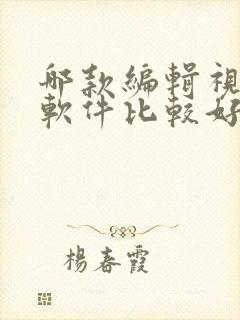 哪款編輯視
軟件比較好
楊春霞